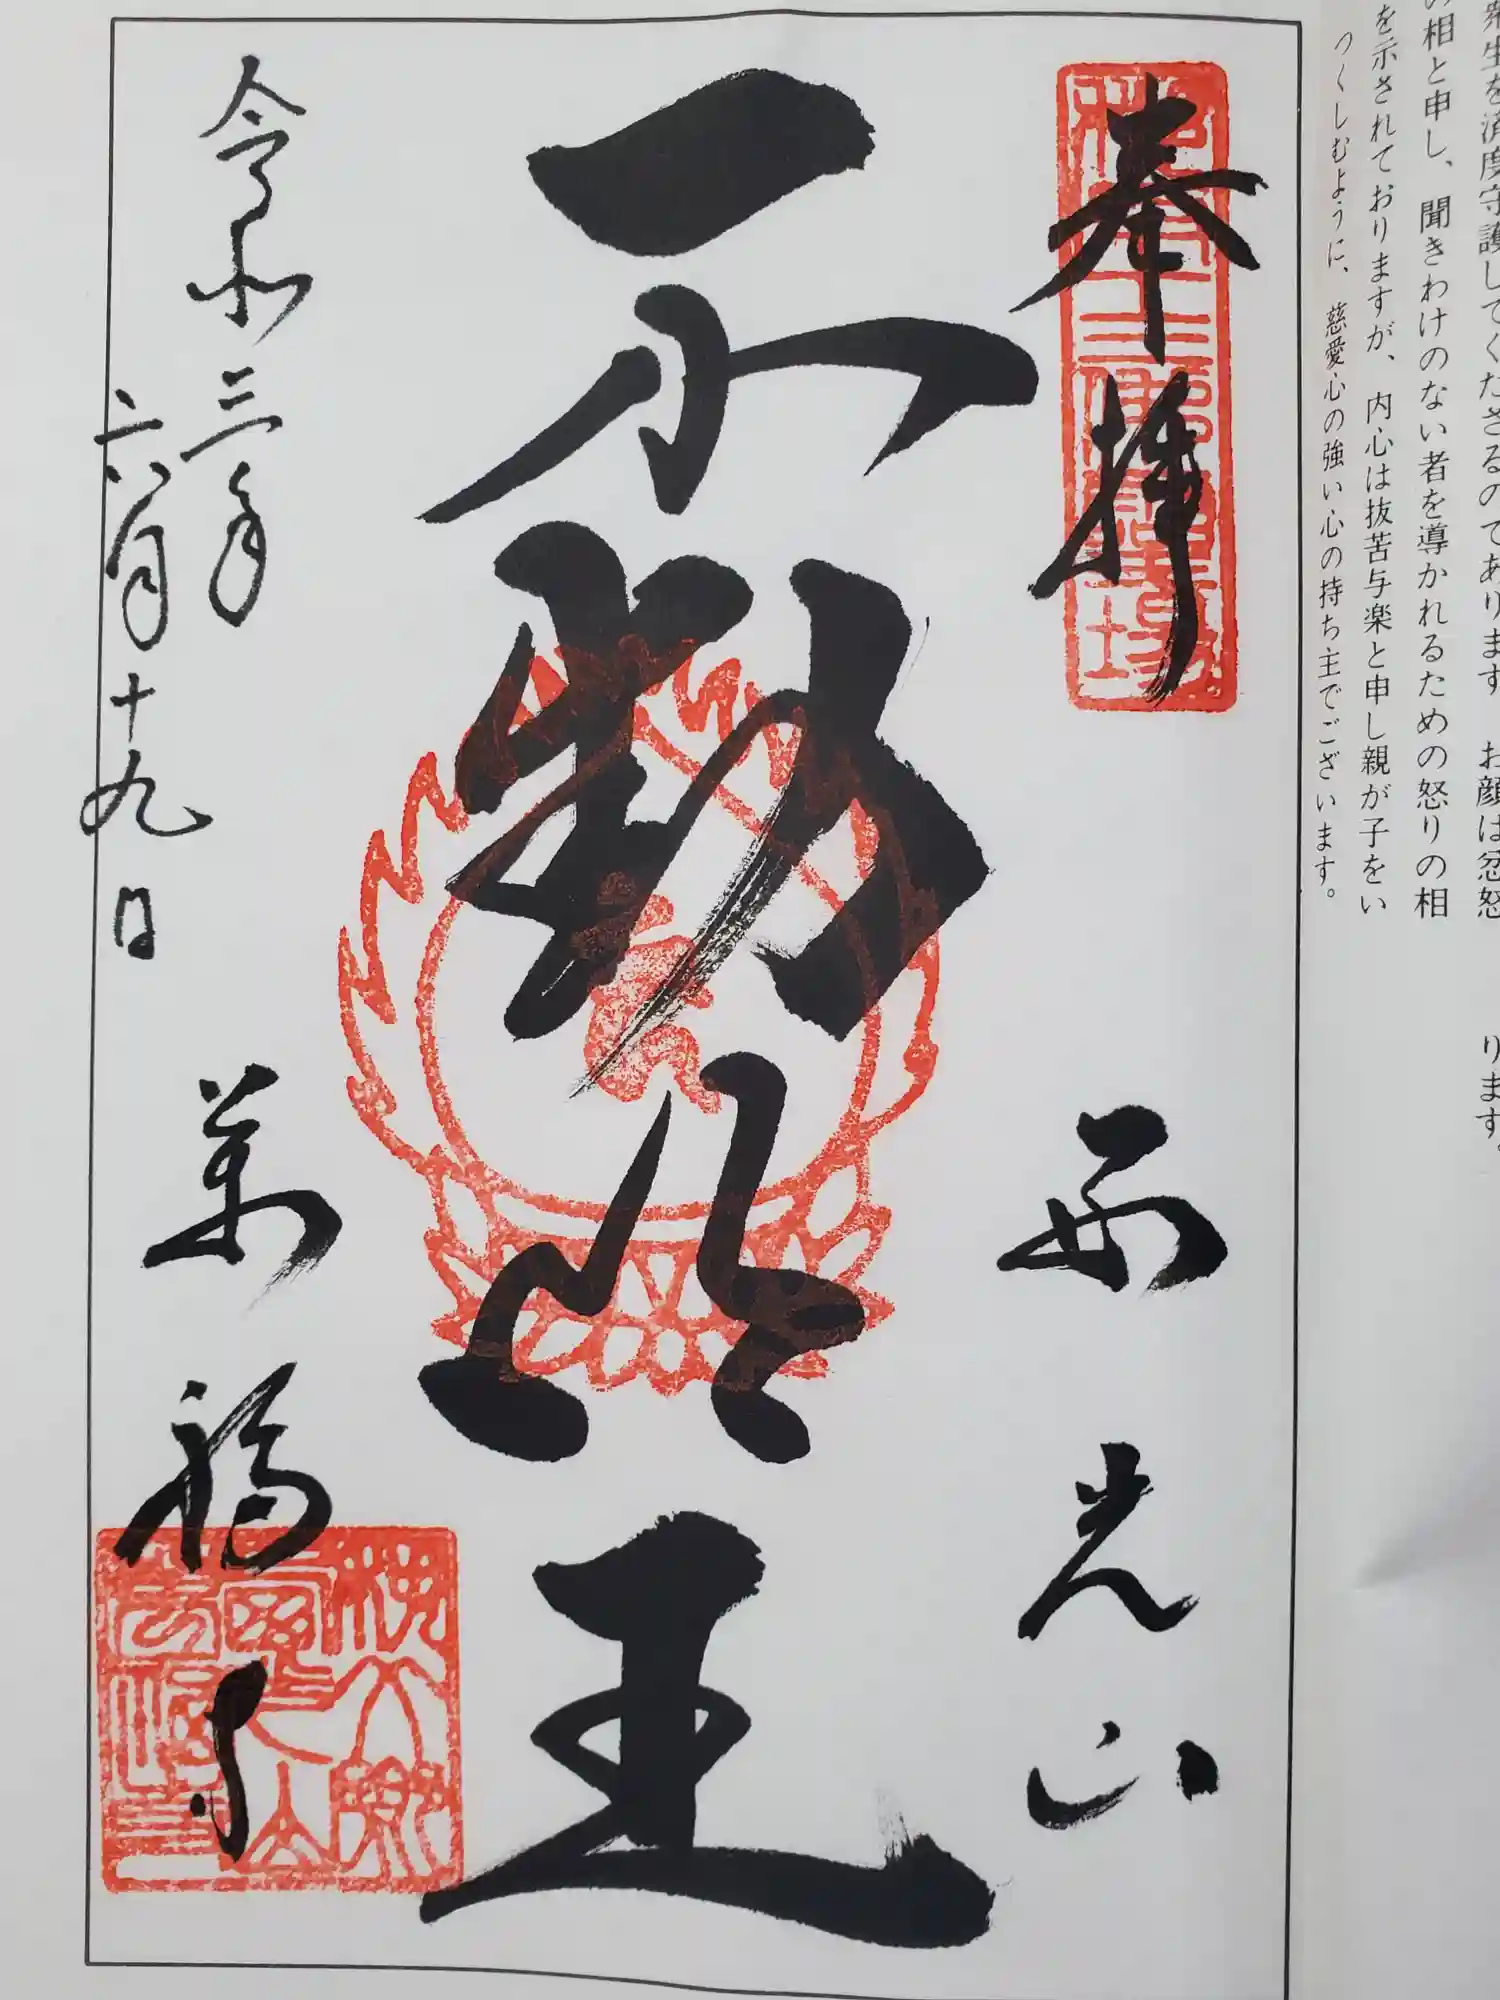 衆生を済度守護してくださるのであります　お顔は忿怒
の相と申し、聞きわけのない者を導かれるための怒りの相
を示されておりますが、内心は抜苦与楽と申し親が子をい
つくしむように、慈愛心の強い心の持ち主でございます。
ります。
奉拝
十三佛霊場
西光山
不動明王
令和三年
六月十九日
萬福寺